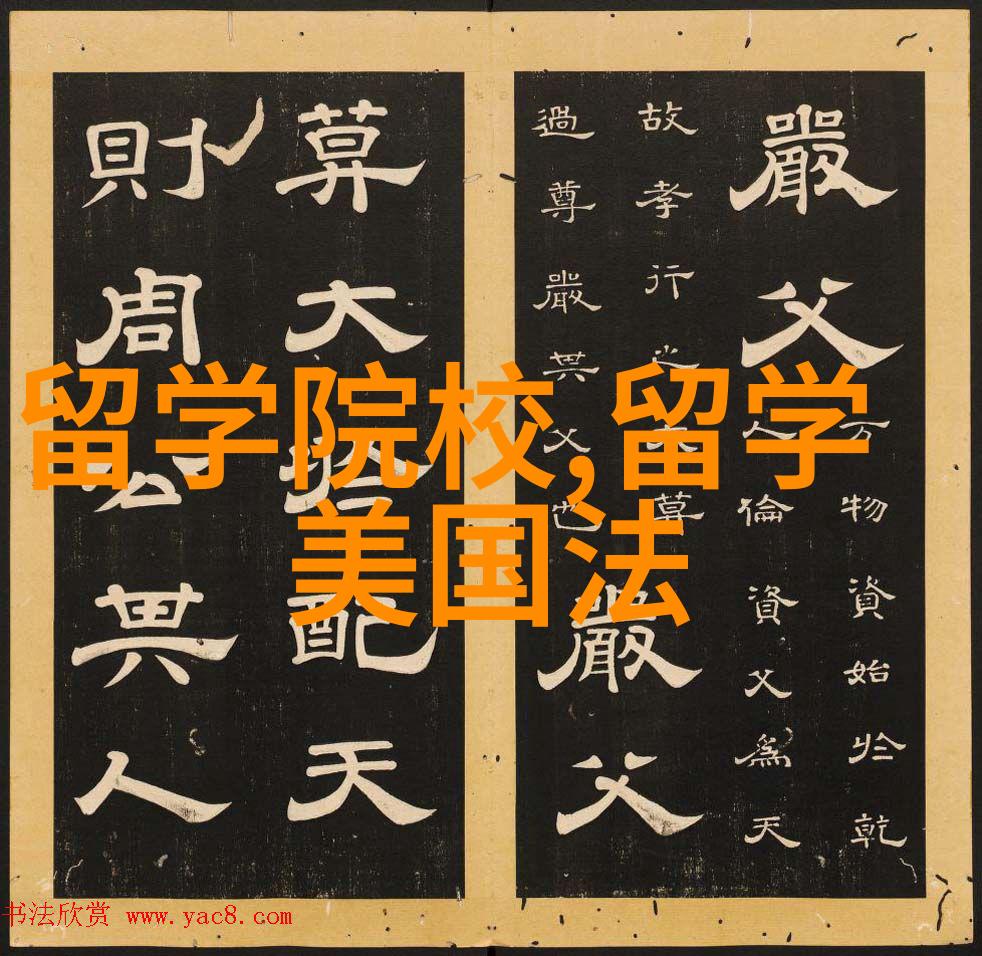 留学院校,留学
美国法
嚴父
万物資始於乾
人倫資父為天
故孝行之大莫
過尊嚴其父也
嚴父
莫大於配天
則周公其人
书法欣赏 www.yac8.com